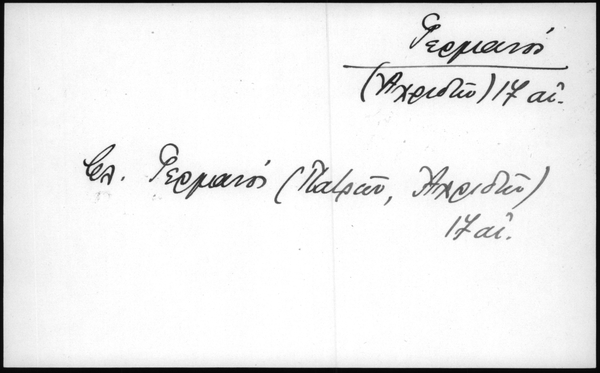 Γερμανός
(Ἀχριδῶν) 17 αἰ.
βλ. Γερμανός (Πατρῶν, Ἀχριδῶν)
17 αἰ.